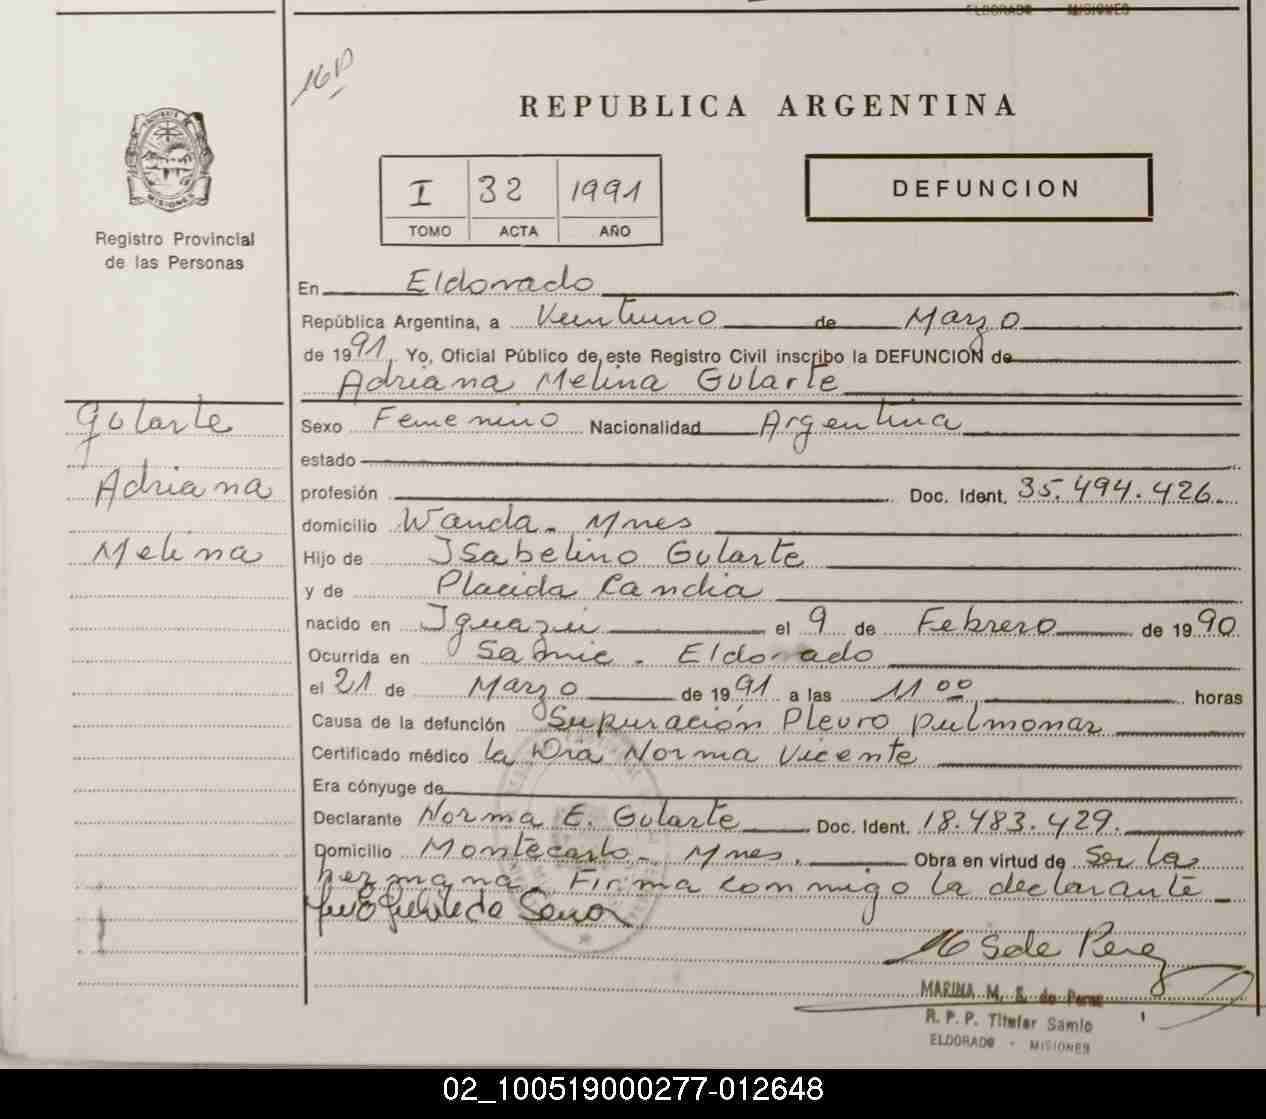 ELDORADO - MISIONES
REPUBLICA ARGENTINA
MISIONES
Registro Provincial
de las Personas
I 32 1991
TOMO ACTA AÑO
DEFUNCION
En Eldorado
República Argentina, a Veintiuno de Marzo
de 1991. Yo, Oficial Público de este Registro Civil inscribo la DEFUNCION de
Adriana Melina Gularte
Gularte
Adriana
Melina
Sexo Femenino Nacionalidad Argentina
estado
profesión Doc. Ident. 35.494.426.
domicilio Wanda - Mnes
Hijo de Isabelino Gularte
y de Placida Candia
nacido en Iguazú el 9 de Febrero de 1990
Ocurrida en Samic - Eldorado
el 21 de Marzo de 1991 a las 11 00 horas
Causa de la defunción Supuración Pleuro pulmonar
Certificado médico la Dra Norma Vicente
Era cónyuge de
Declarante Norma E. Gularte Doc. Ident. 18.483.429.
Domicilio Montecarlo - Mnes. Obra en virtud de Ser la
hermana. Firma conmigo la declarante
MARINA M. S. de Perez
R. P. P. Titular Samic
ELDORADO - MISIONES
02_100519000277-012648